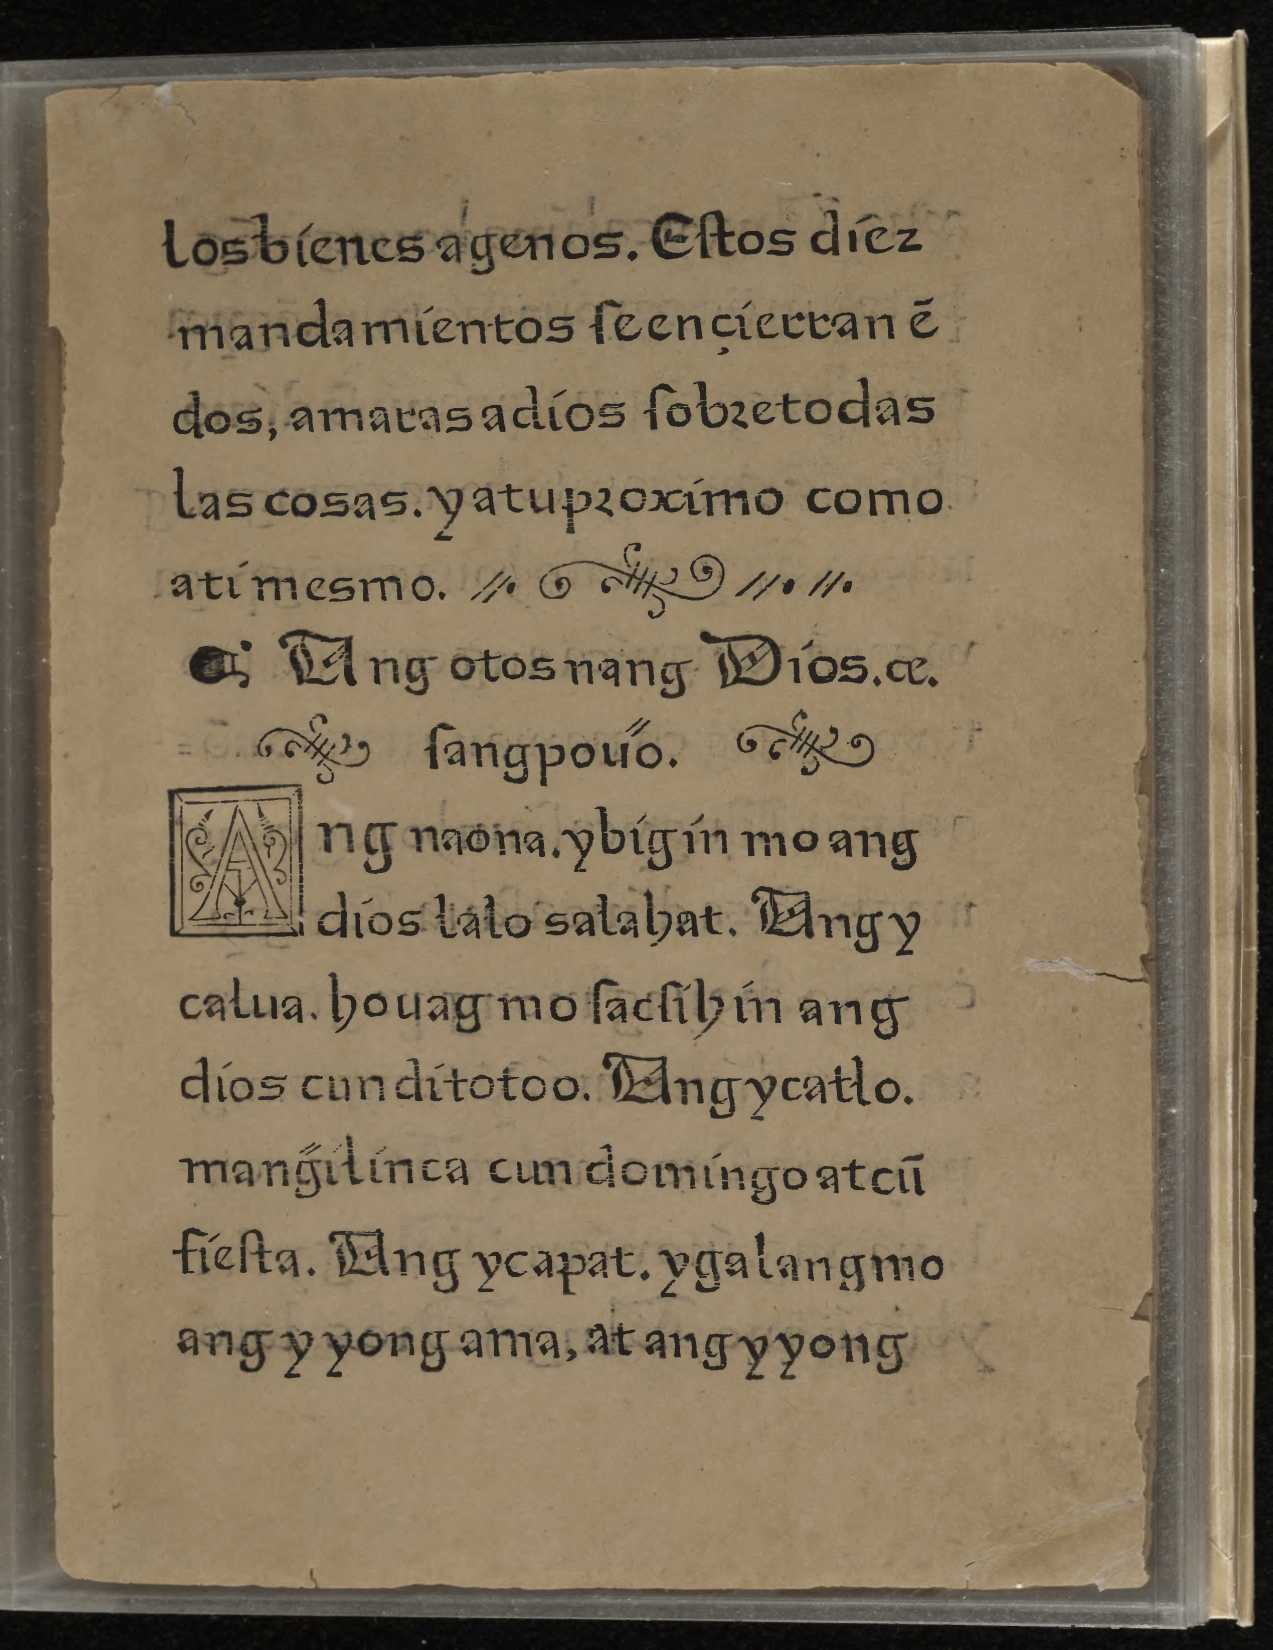 los bienes agenos. Eſtos díez
mandamíentos ſe ençíerran ẽ
dos, amaras a díos ſobre todas
las cosas. y a tu proxímo como
atí mesmo. //. //. //.
Ang otos nang Díos. æ.
ſangpouő.
Ang naona. ybígín mo ang
díos lalo sa lahat. Ang y
calua. houag mo ſacſíhín ang
díos cun dí totoo. Ang ycatlo.
mang̋ílínca cun domíngo at cũ
fíeſta. Ang ycapat. ygalang mo
ang yyong ama, at ang yyong